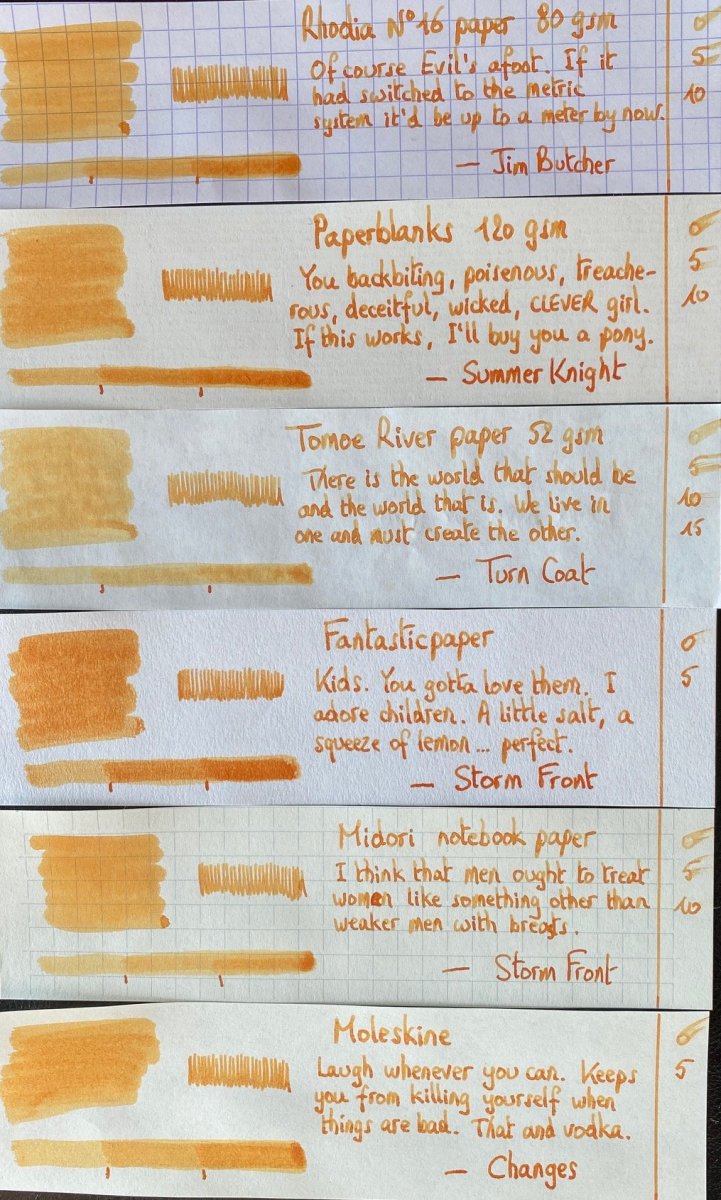 Rhodia N°16 paper 80 gsm
Of course Evil's afoot. If it
had switched to the metric
system it'd be up to a meter by now.
— Jim Butcher
0
5
10
Paperblanks 120 gsm
You backbiting, poisenous, treache-
rous, deceitful, wicked, CLEVER girl.
If this works, I'll buy you a pony.
— Summer Knight
0
5
10
Tomoe River paper 52 gsm
There is the world that should be
and the world that is. We live in
one and must create the other.
— Turn Coat
0
5
10
15
Fantasticpaper
Kids. You gotta love them. I
adore children. A little salt, a
squeeze of lemon... perfect.
— Storm Front
0
5
Midori notebook paper
I think that men ought to treat
women like something other than
weaker men with breasts.
— Storm Front
0
5
10
Moleskine
Laugh whenever you can. Keeps
you from killing yourself when
things are bad. That and vodka.
— Changes
0
5